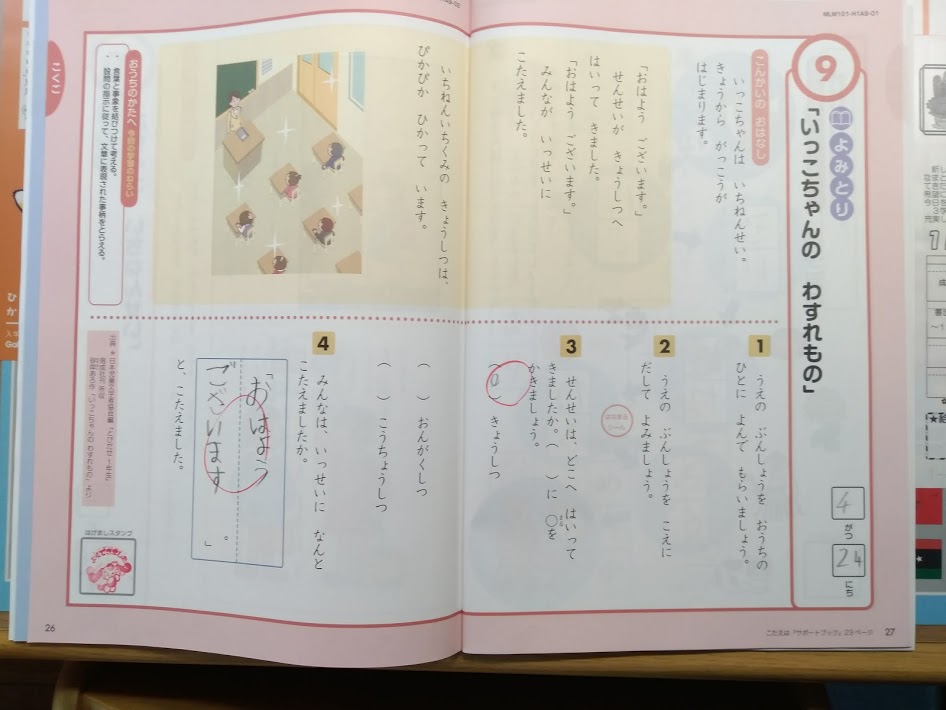 MLM101-H1AS-01
9
よみとり
「いっこちゃんの わすれもの」
4
がつ
24
にち
こんかいの おはなし
いっこちゃんは いちねんせい。
きょうから がっこうが
はじまります。
「おはよう ございます。」
せんせいが きょうしつへ
はいって きました。
「おはよう ございます。」
みんなが いっせいに
こたえました。
いちねんいちくみの きょうしつは、
ぴかぴか ひかって います。
おうちのかたへ 今回の学習のねらい
言葉と事象を結びつけて考える。
設問の指示に従って、文章に表現された事柄をとらえる。
こくご
1
うえの ぶんしょうを おうちの
ひとに よんで もらいましょう。
2
うえの ぶんしょうを こえに
だして よみましょう。
3
せんせいは、どこへ はいって
きましたか。( )に ○を
まる
かきましょう。
(○) きょうしつ
( ) おんがくしつ
( ) こうちょうしつ
4
みんなは、いっせいに なんと
こたえましたか。
「おはよう
ございます 。」
と、こたえました。
はげましスタンプ
よくできました
26
こたえは『サポートブック』29ページ
27